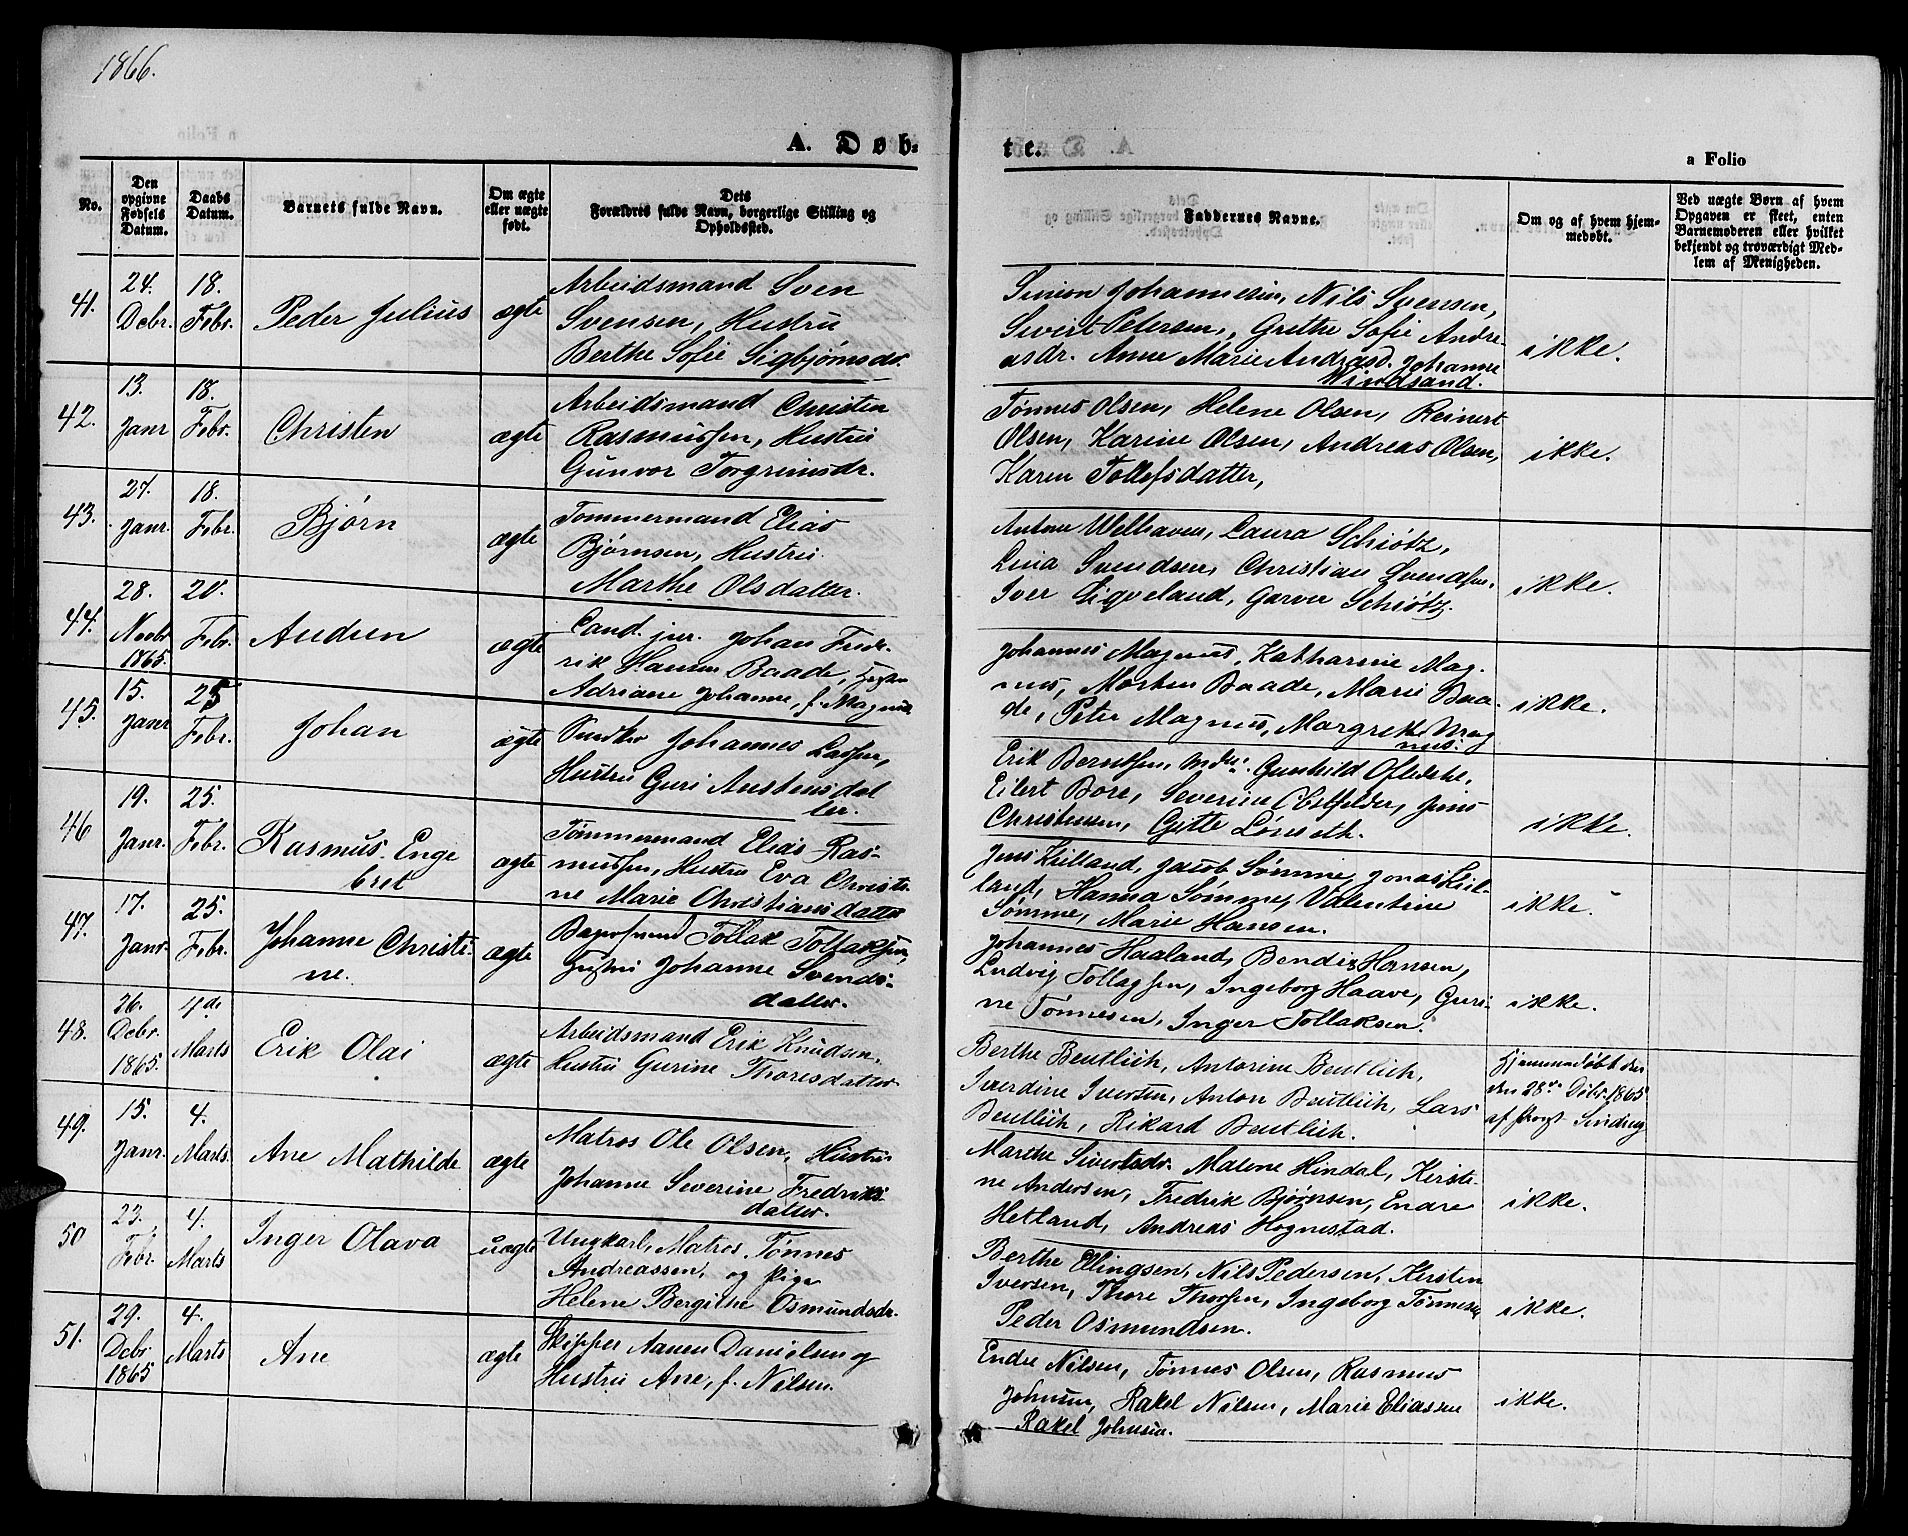 1866.
A. Døb-
te.
a Folio
No.
Den opgivne Fødsels Datum.
Daabs Datum.
Barnets fulde Navn.
Om ægte eller uægte født.
Dets Forældres fulde Navn, borgerlige Stilling og Opholdssted.
Faddernes Navne.
Om og af hvem hjemmedøbt.
Ved uægte Børn af hvem Opgaven er skeet, enten Barnemoderen eller hvilket bekjendt og troværdigt Medlem af Menigheden.
41.
24. Debr.
18. Febr.
Peder Julius
ægte
Arbeidsmand Sven
Svensen, Hustru
Berthe Sofie Sigbjørnsdr.
Simon Johannesen, Nils Svensen,
Sivert Petersen, Grethe Sofie Andre-
asdr. Anne Marie Andreasd. Johanne
Windsand.
ikke.
42.
13. Janr
18. Febr.
Christen
ægte
Arbeidsmand Christen
Rasmussen, Hustru
Gunvor Torgrimsdr.
Tønnes Olsen, Helene Olsen, Reinert
Olsen, Karine Olsen, Andreas Olsen,
Karen Tollefsdatter,
ikke.
43.
27. Janr.
18. Febr.
Bjørn
ægte
Tømmermand Elias
Bjørnsen, Hustru
Marthe Olsdatter.
Welhaven, Laura Schiøtz,
Lina Svendsen, Christian Svendsen,
Iver Sigveland, Schiøtz.
ikke.
44.
28. Novbr 1865.
20. Febr
ægte
Cand. jur. Johan Fred-
rik Hansen Baade, Hustru
Adriane Johanne, f. Magnus
Johannes Magnus, Katharine Mag-
nus, Morten Baade, Marie Baa-
de, Peter Magnus, Margrethe Mag
nus.
ikke.
45.
15. Janr
25 Febr.
Johan
ægte
Johannes Larsen,
Hustru Guri Austensdat
ter.
Erik Berntsen, Gunhild Oftedahl,
Eilert Bore, Severine Obstfelder, Jens
Christensen, Gitte Lønseth.
ikke.
46
19. Janr.
25. Febr.
Rasmus Enge
bret
ægte
Tømmermand Elias Ras-
mussen, Hustru Eva Christi-
ne Marie Christiansdatter
Jens Kielland, Jacob Sømme, Jonas Kiel-
land, Hanna Sømme, Valentine
Sømme, Marie Hansen.
ikke.
47.
17. Janr.
25. Febr.
Johanne Christi-
ne.
ægte
Tollak Tollaksen,
Hustru Johanne Svends-
datter.
Johannes Haaland, Bendix Hansen,
Ludvig Tollagsen, Ingeborg Haave, Guri-
ne Tønnesen, Inger Tollaksen.
ikke.
48.
26. Debr. 1865.
4de Marts
Erik Olai
ægte
Arbeidsmand Erik Knudsen,
Hustru Gurine Thoresdatter
Berthe Beutlich, Antorine Beutlich,
Iverdine Iversen, Anton Beutlich, Lars
Beutlich, Rikard Beutlich.
Hjemmedøbt
den 28de Debr. 1865
af
49.
15. Janr.
4. Marts.
Ane Mathilde
ægte
Matros Ole Olsen, Hustru
Johanne Severine Fredriks
datter.
Marthe Sivertsdr. Malene Hindal, Kirsti-
ne Andersen, Fredrik Bjørnsen, Endre
Hetland, Andreas Hognestad.
ikke.
50
23. Febr.
4. Marts
Inger Olava
uægte
Ungkarl, Matros Tønnes
Andreassen, og Pige
Helene Bergithe Osmundsdr.
Berthe Elingsen, Nils Pedersen, Kirsten
Iversen, Thore Thorsen, Ingeborg Tønnesen
Peder Osmundsen.
ikke.
51.
29. Debr. 1865
4. Marts
Ane
ægte
Skipper Aanen Danielsen og
Hustru Ane, f. Nilsen.
Endre Nilsen, Tønnes Olsen, Rasmus
Johnsen, Rakel Nilsen, Marie Eliassen
Rakel Johnsen.
ikke.